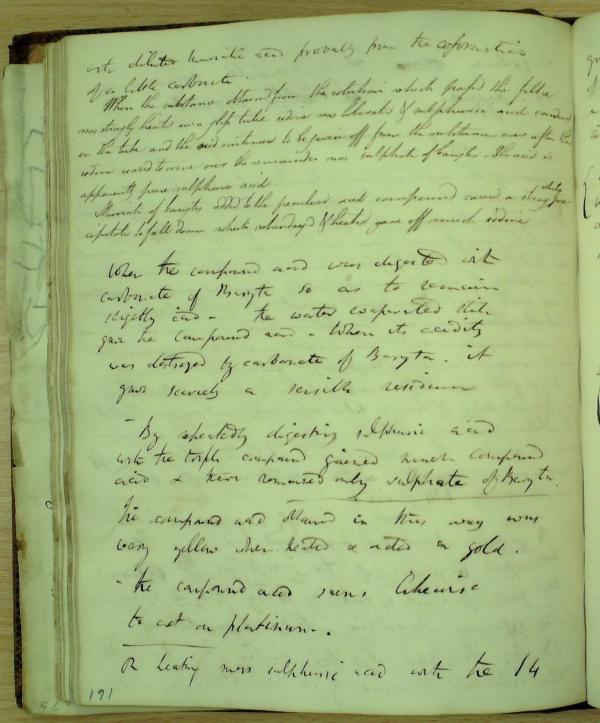 with diluted muriatic acid probably from the
of a little carbonate
When the substance obtained from the solution which passed the filtre
was strongly heated in a glass tube iodine was liberated & sulphuric acid condensed
in the tube and the acid continued to be given off from the substance even after the
iodine ceased to come over the remainder was sulphate of barytes. The acid is
apparently pure sulphuric acid
Muriate of barytes added to the peculiar acid compound caused a strong white pre
cipitate to fall down which when dryed & heated gave off much iodine
When the compound acid was digested with
carbonate of Baryta so as to remain
slightly acid - the water evaporated still
gave the compound acid - When its acidity
was destroyed by carbonate of Baryta. it
gave scarcely a sensible residuum
- By repeatedly digesting sulphuric acid
with the triple compound gained much compound
acid & there remained only sulphate of Baryta.
The compound acid obtained in this way was
very yellow when heated & acted on gold.
- The compound acid seems likewise
to act on platinum.
On heating more sulphuric acid with the 14
191